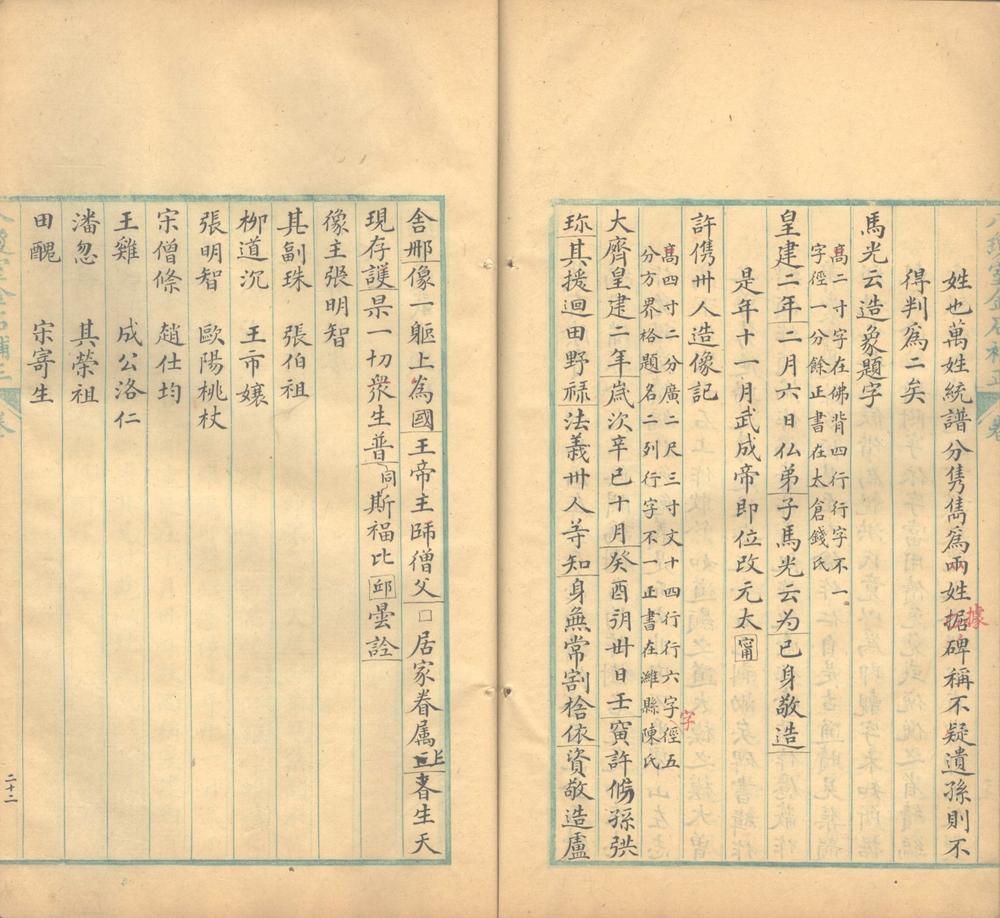 姓也萬姓統譜分雋雟爲兩姓据碑稱不疑遺孫則不
據
得判爲二矣
馬光云造象題字
高二寸字在佛背四行行字不一
字徑一分餘正書在太倉錢氏
皇建二年二月六日仏弟子馬光云为已身敬造
是年十一月武成帝即位改元太甯
許儁卅人造像記
高四寸二分廣二尺三寸文十四行行六字徑五
字
分方界格題名二列行字不一正書在濰縣陳氏
大齊皇建二年歲次辛巳十月癸酉朔卅日壬寅許儁孫洪
珎其援迴田野禄法義卅人等知身無常割捨依資敬造盧
舍那像一軀上為國王帝主師僧父□居家眷属亡者生天
上
現存護果一切衆生普同斯福比邱曇詮
像主張明智
其副珠 張伯祖
柳道沉 王市孃
張明智 歐陽桃杖
宋僧條 趙仕均
王雞 成公洛仁
潘忽 其榮祖
田醜 宋寄生
二十二